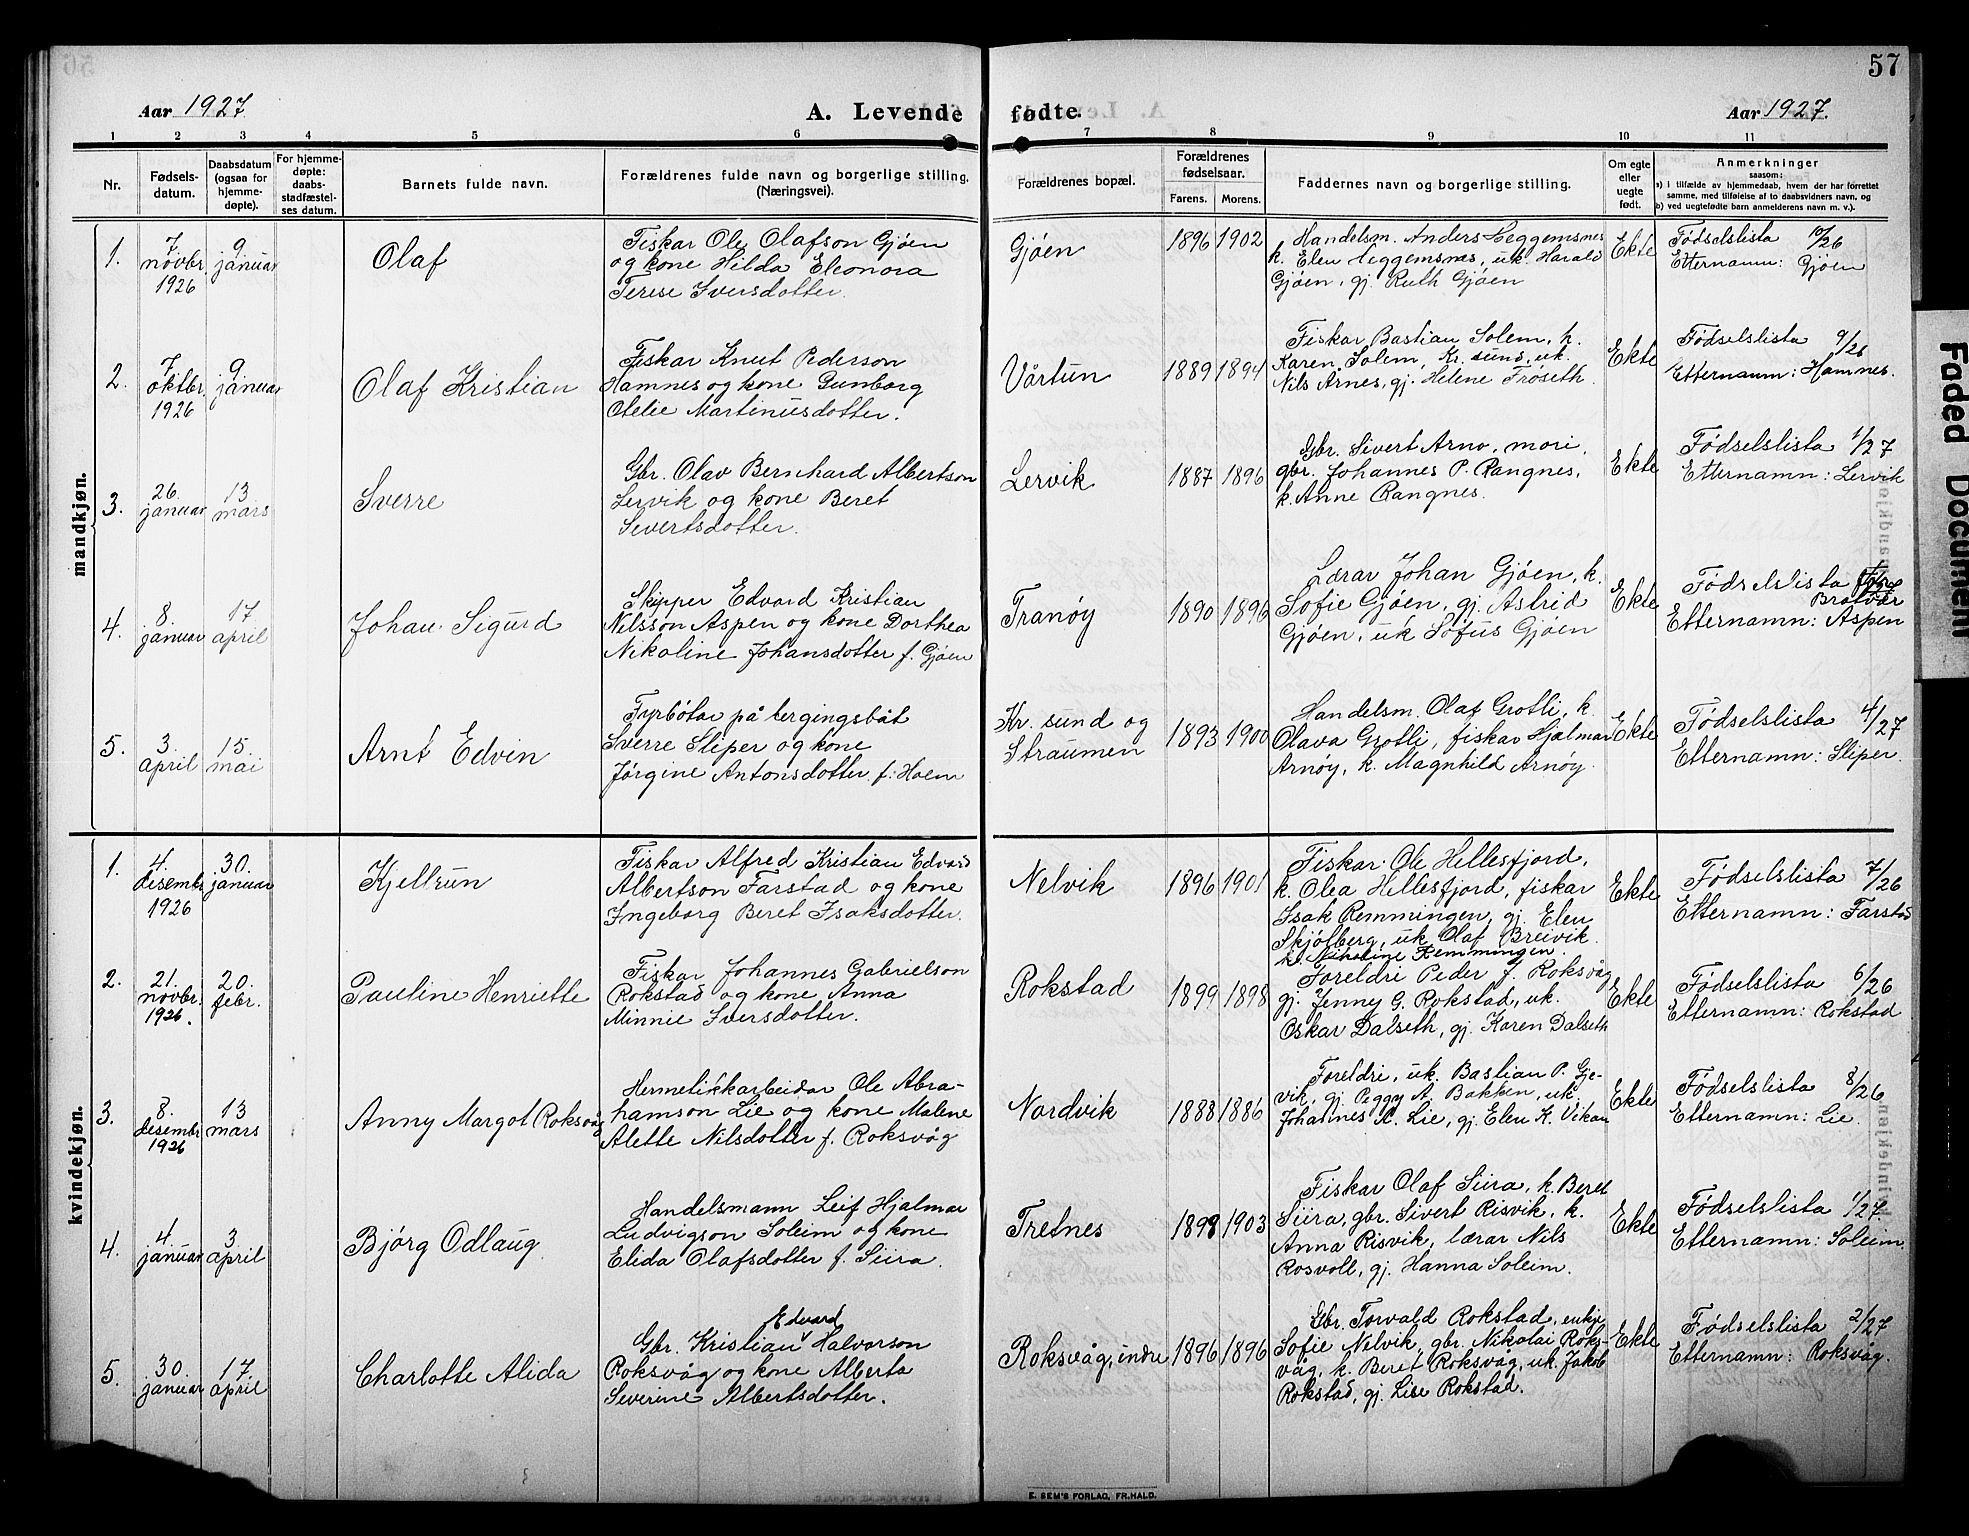 57
Aar 1927
A. Levende
fødte.
Aar 1927.
1 2 3 4 5 6 7 8 9 10 11
Nr.
Fødsels-
datum.
Daabsdatum
(ogsaa for
hjemme-
døpte).
For hjemme-
døpte:
daabs-
stadfæstel-
ses datum.
Barnets fulde navn.
Forældrenes fulde navn og borgerlige stilling.
(Næringsvei).
Forældrenes bopæl.
Forældrenes
fødselsaar.
Farens. Morens.
Faddernes navn og borgerlige stilling.
Om egte
eller
uegte
født.
Anmerkninger
saasom:
a) i tilfælde av hjemmedaab, hvem der har forrettet
samme, med tilføielse av to daabsvidners navn, og
b) ved uegtefødte barn anmelderens navn m. v.).
mandkjøn.
1.
7
novbr
1926
9
januar
Olaf
Fiskar Ole Olafson Gjøen
og kone Hilda Eleonora
Terese Iversdotter.
Gjøen
1896 1902
Handelsm. Anders Heggemsnes
k. Elen Heggemsnes, uk. Harald
Gjøen, gj. Ruth Gjøen
Ekte
Fødselslista 10/26
Etternamn: Gjøen
2.
7
oktbr
1926
9
januar
Olaf Kristian
Fiskar Knut Pederson
Hamnes og kone Gunborg
Otelie Martinusdotter.
Vårtun
1889 1894
Fiskar Bastian Solem, k.
Karen Solem, Kr. sund, uk.
Nils Arnes, gj. Helene Trøseth.
Ekte
Fødselslista 9/26
Etternamn: Hamnes.
3.
26.
januar
13
mars
Sverre
Gbr. Olav Bernhard Albertson
Lervik og kone Beret
Sivertsdotter.
Lervik
1887 1896
Gbr. Sivert Arno, mori,
gbr. Johannes P. Rangnes,
k. Anne Rangnes.
Ekte
Fødselslista 1/27
Etternamn: Lervik
4.
8.
januar
17
april
Johan Sigurd
Skipper Edvard Kristian
Nilsson Aspen og kone Dorthea
Nikoline Johansdotter f. Gjøen
Tranøy
1890 1896
Lærar Johan Gjøen, k.
Sofie Gjøen, gj. Astrid
Gjøen, uk Sofus Gjøen
Ekte
Fødselslista
Bratvær
Etternamn: Aspen
5.
3.
april
15.
mai
Arnt Edvin
Fyrbøtar på bergingsbåt
Sverre Sliper og kone
Jørgine Antonsdotter f. Holm
Kr. sund og
Straumen
1893 1900
Handelsm. Olaf Grotli, k.
Olava Grotli, fiskar Hjalmar
Arnøy, k. Magnhild Arnøy.
Ekte
Fødselslista 4/27
Etternamn: Sliper.
kvindekjøn.
1.
4.
desembr
1926
30.
januar
Kjellrun
Fiskar Alfred Kristian Edvard
Albertson Farstad og kone
Ingeborg Beret Isaksdotter.
Nelvik
1896 1901
Fiskar Ole Hellesfjord,
k. Olea Hellesfjord, fiskar
Isak Remmingen, gj. Elen
Skjølberg, uk Olaf Breivik.
k. Nikoline Remmingen.
Ekte
Fødselslista 7/26
Etternamn: Farstad
2.
21.
novbr.
1926.
20.
febr.
Pauline Henriette
Fiskar Johannes Gabrielson
Rokstad og kone Anna
Minnie Iversdotter.
Rokstad
1899 1898
Foreldri Peder J. Roksvåg
gj. Jenny G. Rokstad, uk.
Oskar Dalseth, gj. Karen Dalseth
Ekte
Fødselslista 6/26
Etternamn: Rokstad
3.
8.
desembr
1926
13
mars
Anny Margot Roksvåg
Hermetikkarbeidar Ole Abra-
hamson Lie og kone Malene
Alette Nilsdotter f. Roksvåg
Nordvik
1888 1886
Foreldri, uk. Bastian P. Gje-
vik, gj. Peggy A. Bakken, uk.
Johannes A. Lie, gj. Elen K. Vikan
Ekte
Fødselslista 8/26
Etternamn: Lie.
4.
4
januar
3
april
Bjørg Odlaug.
Handelsmann Leif Hjalmar
Ludvigson Soleim og kone
Elida Olafsdotter f. Siira.
Tretnes
1898 1903
Fiskar Olaf Siira, k. Beret
Siira, gbr. Sivert Risvik, k.
Anna Risvik, lærar Nils
Rosvoll, gj. Hanna Soleim.
Ekte
Fødselslista 1/27.
Etternamn: Soleim.
5.
30.
januar
17.
april
Charlotte Alida
Edvard
Gbr. Kristian Halvorson
Roksvåg og kone Alberta
Severine Albertsdotter.
Roksvåg, indre
1896 1896
Gbr. Torvald Rokstad, enkje
Sofie Nelvik, gbr. Nikolai Roks-
våg, k. Beret Roksvåg, uk. Jakob
Rokstad, gj. Lise Rokstad.
Ekte
Fødselslista 2/27
Etternamn: Roksvåg.
E. SEM'S FORLAG, FR.HALD.
Faded Document